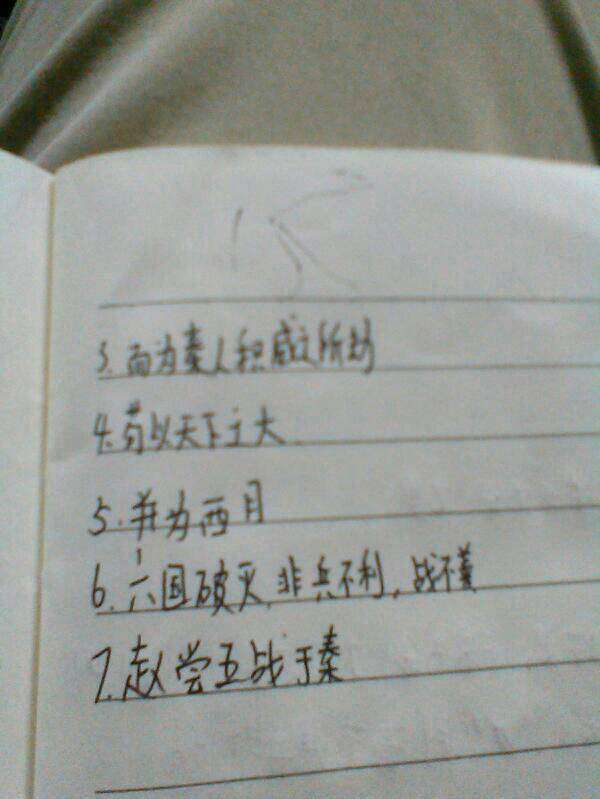 3.而为秦人积威之所劫
4.苟以天下之大
5.并为西月
6.六国破灭,非兵不利,战不善
7.赵尝五战于秦